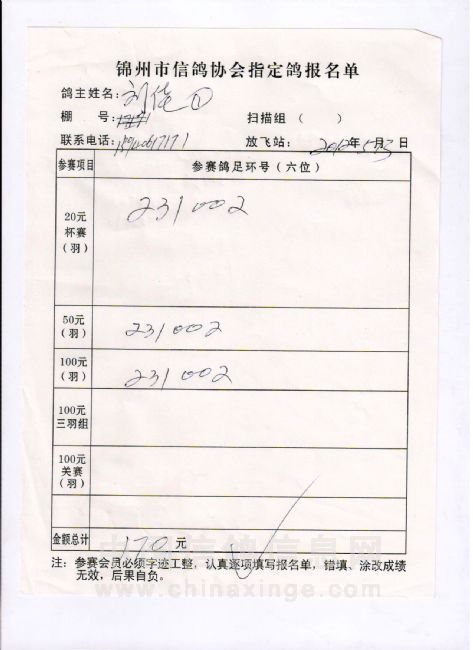 锦州市信鸽协会指定鸽报名单
鸽主姓名：刘
棚 号： 扫描组（ ）
联系电话： 放飞站： 2012年5月3日
参赛项目 参赛鸽足环号（六位）
20元
杯赛
（羽） 231002
50元
（羽） 231002
100元
（羽） 231002
100元
三羽组
100元
关赛
（羽）
金额总计 170 元
注：参赛会员必须字迹工整，认真逐项填写报名单，错填、涂改成绩
无效，后果自负。
中国信鸽信息网
www.chinaxinge.com